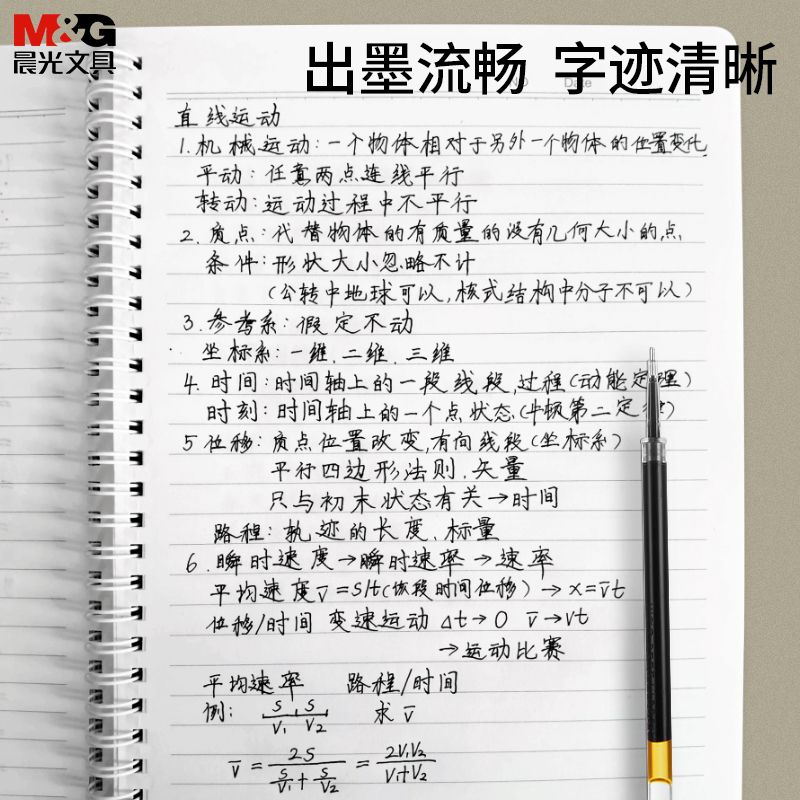 M&G
晨光文具
出墨流畅 字迹清晰
Date
直线运动
1.机械运动:一个物体相对于另外一个物体的位置变化
平动:任意两点连线平行
转动:运动过程中不平行
2.质点:代替物体的有质量的没有几何大小的点
条件:形状大小忽略不计
(公转中地球可以,核式结构中分子不可以)
3.参考系:假定不动
坐标系:一维、二维、三维
4.时间:时间轴上的一段线段,过程(动能定理)
时刻:时间轴上的一个点状态(牛顿第二定律)
5位移:质点位置改变,有向线段(坐标系)
平行四边形法则.矢量
只与初末状态有关→时间
路程:轨迹的长度、标量
6.瞬时速度→瞬时速率→速率
平均速度v̅=s/t(该段时间位移)→x=v̅t
位移/时间 变速运动 Δt→0 v̅→vt
→运动比赛
平均速率 路程/时间
例: S S 求v̅
V₁ V₂
v̅=2S/(S/V₁+S/V₂)=2V₁V₂/(V₁+V₂)